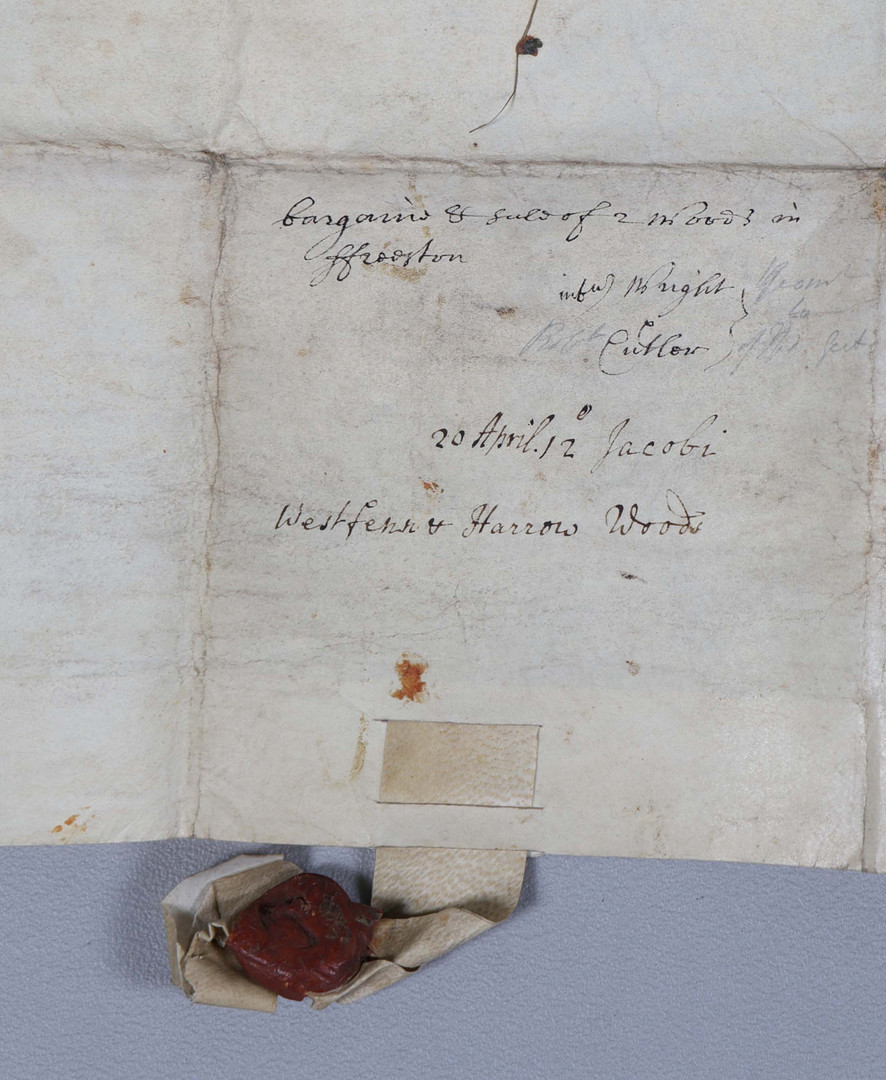 bargaine & sale of 2 Woods in
ffreeston
Wright
Cutler
20 April. 12º Jacobi
Westfenn & Harrow Woods